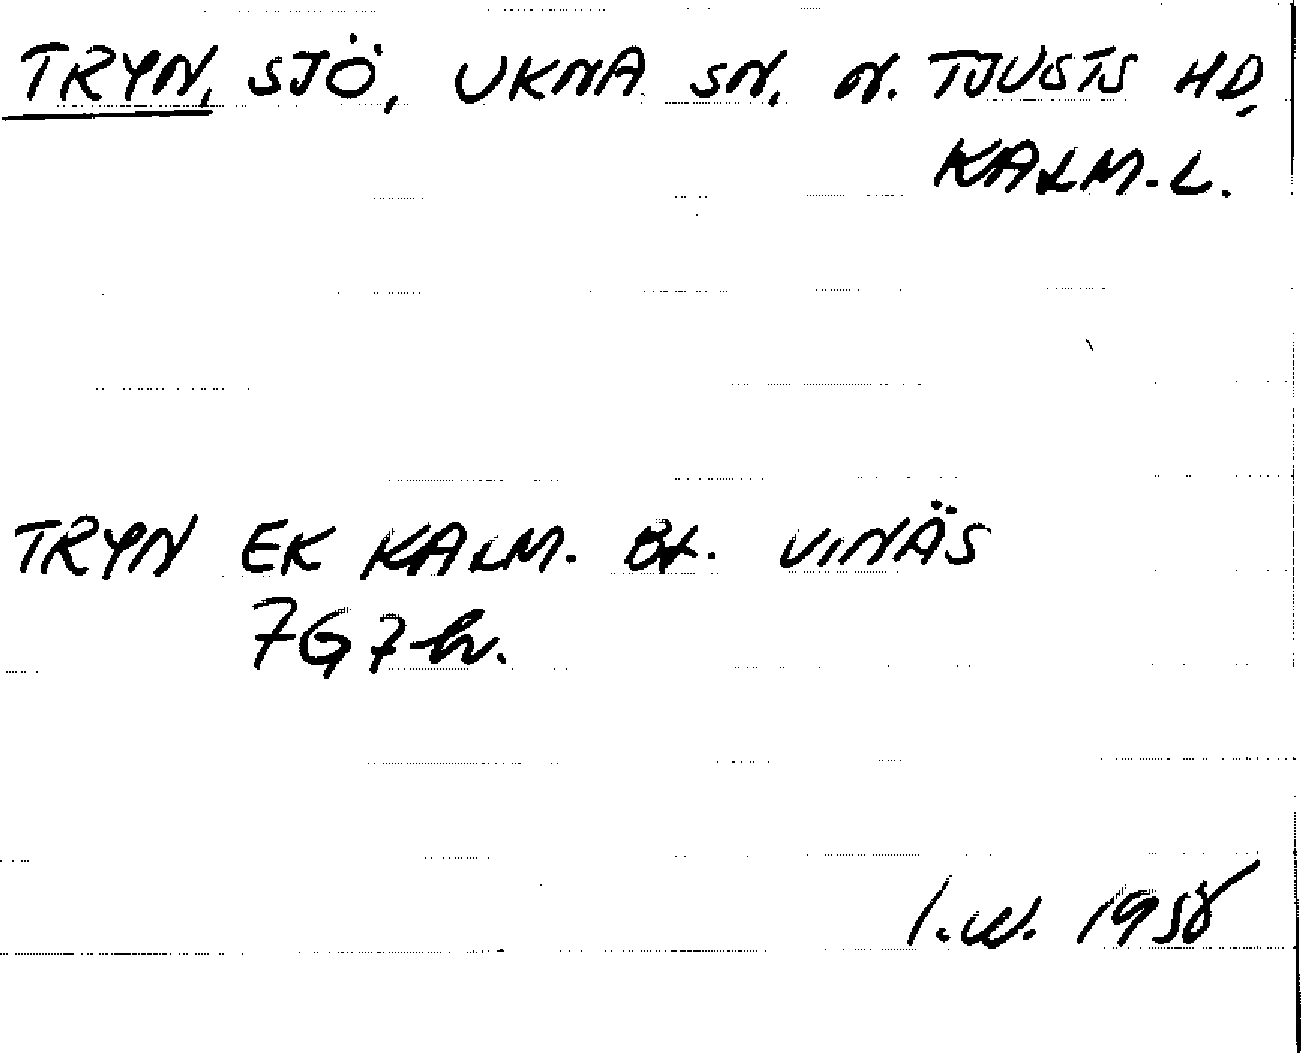 TRYN, SJÖ, UKNA SN, N. TJUSTS HD,
KALM. L.
TRYN EK KALM. BL. VINÄS
7G7h.
I.W. 1958